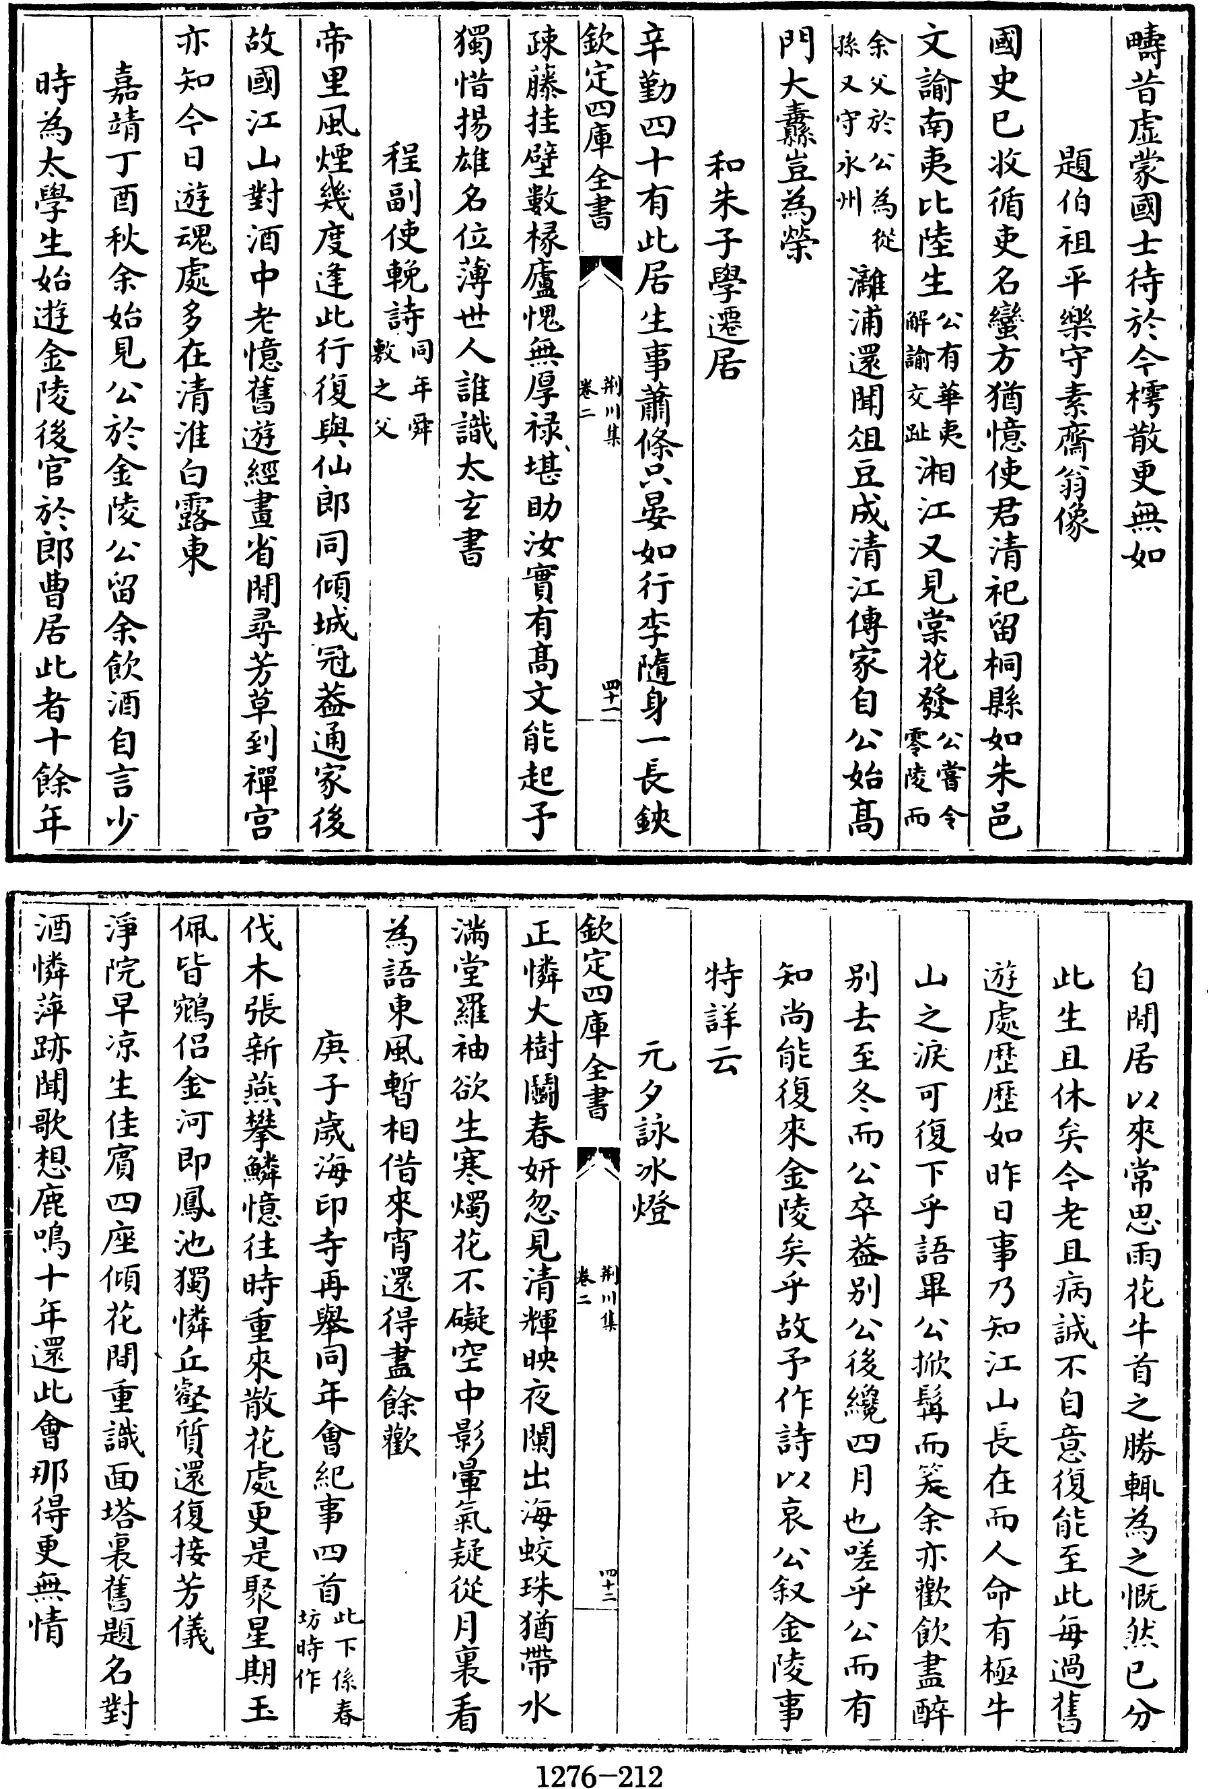 疇昔虚蒙國士待於今樗散更無如
題伯祖平樂守素齋翁像
國史已收循吏名蠻方猶憶使君清祀留桐縣如朱邑
文諭南夷比陸生公有華夷解諭交趾湘江又見棠花發公嘗令零陵而
余父於公為從孫又守永州灕浦還聞俎豆成清江傳家自公始髙
門大纛豈為榮
和朱子學遷居
辛勤四十有此居生事蕭條只晏如行李隨身一長鋏
欽定四庫全書
荆川集
卷二
四十一
疎藤挂壁數椽廬愧無厚禄堪助汝實有髙文能起予
獨惜揚雄名位薄世人誰識太玄書
程副使輓詩同年舜敷之父
帝里風煙幾度逢此行復與仙郎同傾城冠葢通家後
故國江山對酒中老憶舊遊經畫省閒尋芳草到禪宫
亦知今日遊魂處多在清淮白露東
嘉靖丁酉秋余始見公於金陵公留余飲酒自言少
時為太學生始遊金陵後官於郎曹居此者十餘年
自閒居以來常思雨花牛首之勝輒為之慨然已分
此生且休矣今老且病誠不自意復能至此每過舊
遊處歴歴如昨日事乃知江山長在而人命有極牛
山之淚可復下乎語畢公掀髯而笑余亦歡飲盡醉
别去至冬而公卒葢别公後纔四月也嗟乎公而有
知尚能復來金陵矣乎故予作詩以哀公叙金陵事
特詳云
元夕詠冰燈
欽定四庫全書
荆川集
卷二
四十二
正憐火樹鬬春妍忽見清輝映夜闌出海蛟珠猶帶水
滿堂羅袖欲生寒燭花不礙空中影暈氣疑從月裏看
為語東風暫相借來宵還得盡餘歡
庚子歲海印寺再舉同年會紀事四首此下係春坊時作
伐木張新燕攀鱗憶往時重來散花處更是聚星期玉
佩皆鵷侣金河即鳳池獨憐丘壑質還復接芳儀
淨院早凉生佳賓四座傾花間重識面塔裏舊題名對
酒憐萍跡聞歌想鹿鳴十年還此會那得更無情
1276-212